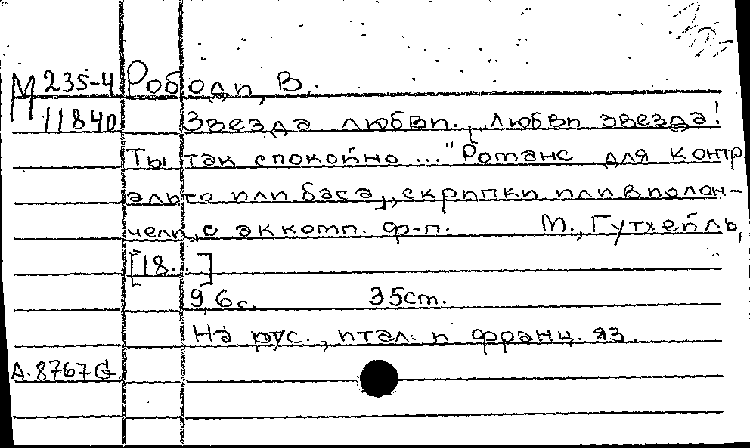 М 235-4 Рободи, В.
11840 Звезда любви. "Любви звезда!
Ты так спокойно ..." Романс для контр
альта или баса, скрипки или виолон-
чели, с аккомп. ф-п. М., Гутхейль,
[18..]
9, 6 с. 35 cm.
На рус., итал. и франц. яз.
А.8767G